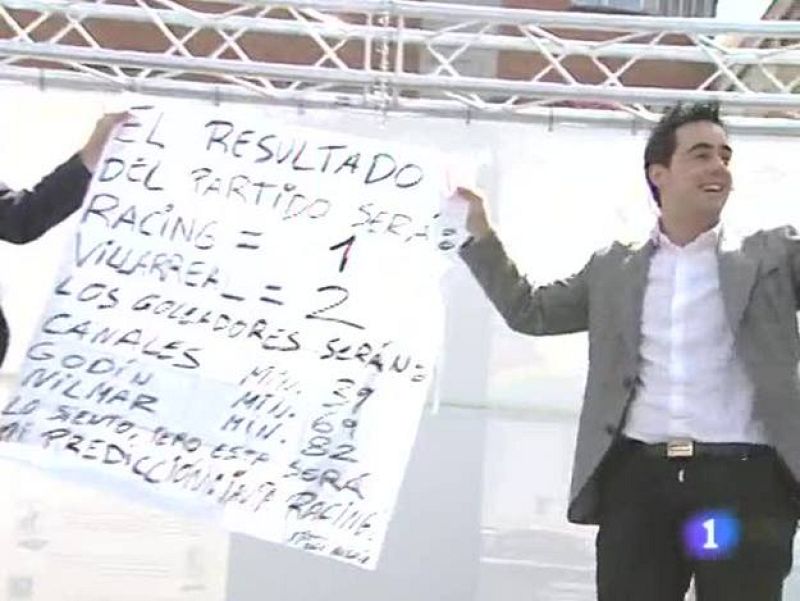 EL RESULTADO
DEL PARTIDO SERÁ:
RACING = 1
VILLARREAL = 2
LOS GOLEADORES SERÁN:
CANALES MIN. 39
GODÍN MIN. 69
NILMAR MIN. 82
LO SIENTO, PERO ESTA SERÁ
MI PREDICCION: RACING.
1